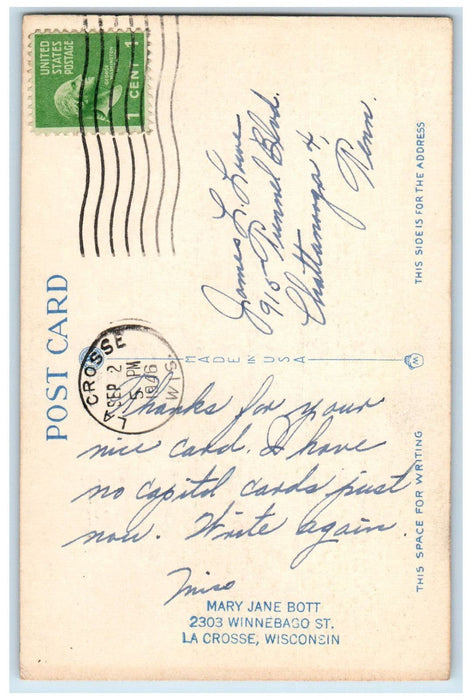 UNITED
STATES
POSTAGE
GEORGE WASHINGTON
1 CENT 1
James L. Lowe
915 Tunnel Blvd.
Chattanooga 4,
Tenn.
THIS SIDE IS FOR THE ADDRESS
POST CARD
LA CROSSE
SEP 2
5 PM
1946
WIS.
MADE IN USA
Thanks for your
nice card. I have
no capitol cards just
now. Write again.
Miss
MARY JANE BOTT
2303 WINNEBAGO ST.
LA CROSSE, WISCONSIN
THIS SPACE FOR WRITING